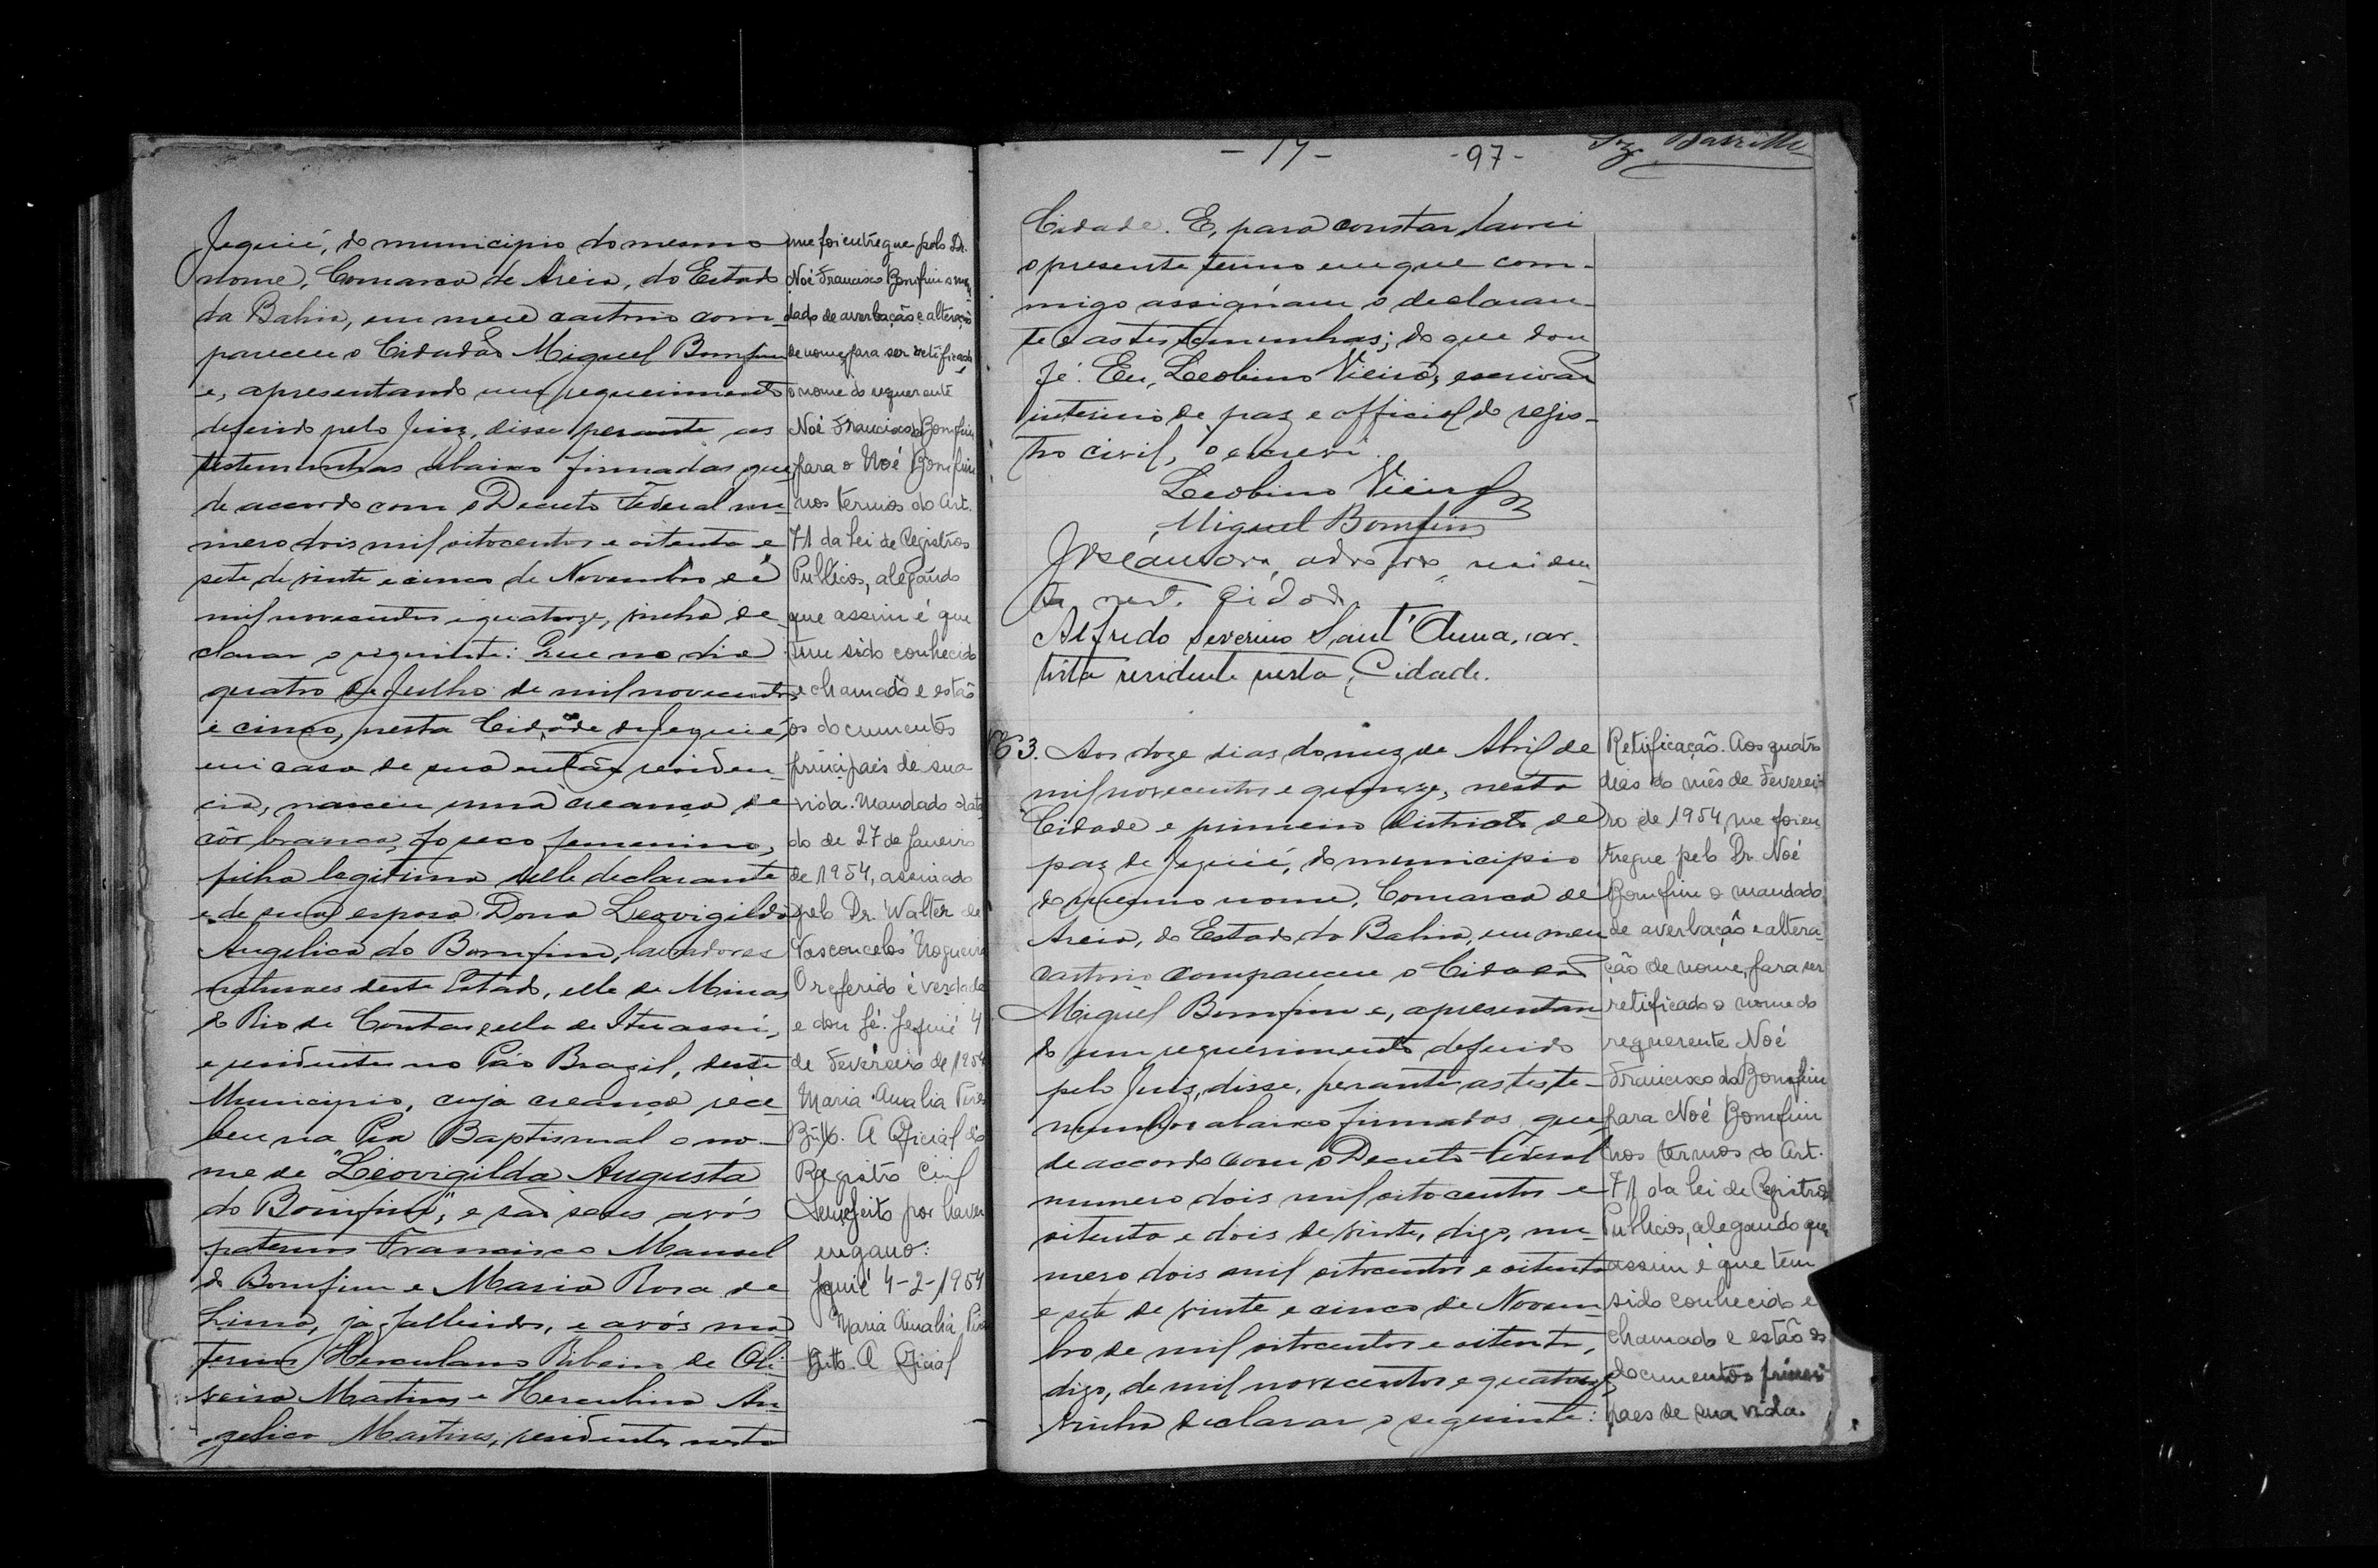 Jequié, do municipio do mesmo
nome, Comarca de Areia, do Estado
da Bahia, em meu cartorio com-
pareceu o Cidadão Miguel Bomfim
e, apresentando um requerimento
deferido pelo Juiz, disse perante as
testemunhas abaixo firmadas que,
de accordo com o Decreto Federal nu-
mero dois mil oitocentos e oitenta e
sete de vinte e cinco de Novembro de
mil novecentos e quatorze, vinha de-
clarar o seguinte: Que no dia
quatro de Julho de mil novecentos
e cinco, nesta Cidade de Jequié,
em casa de sua então residen-
cia, nasceu uma creança de
côr branca, do sexo femenino,
filha legitima delle declarante
e de sua esposa Dona Leovigilda
Angelica do Bomfim, lavradores
naturaes deste Estado, elle de Minas
do Rio de Contas e ella de Ituassú,
e residentes no Páo Brazil, deste
Municipio, cuja creança rece-
beu na Pia Baptismal o no-
me de "Leovigilda Augusta
do Bomfim", e são seus avós
paternos Francisco Manoel
do Bomfim e Maria Rosa de
Lima, já fallecidos, e avós ma-
ternos Herculano Ribeiro de Oli-
veira Martins e Herculina An-
gelica Martins, residentes nesta
me foi entregue pelo Dr.
Noé Francisco Bomfim o man
dado de averbação e alteração
de nome, para ser retificado
o nome do requerente
Noé Francisco do Bomfim
para o Noé Bomfim
nos termos do Art.
71 da lei de Registros
Publicos, alegando
que assim é que
tem sido conhecido
e chamado e estão
os documentos
principaes de sua
vida. Mandado data
do de 27 de Janeiro
de 1954, assinado
pelo Dr. Walter de
Vasconcelos Nogueira
O referido é verdade
e dou fé. Jequié 4
de Fevereiro de 1954
Maria Amalia Pires
Britto. A Oficial do
Registro Civil
Sem efeito por haver
engano:
Jequié 4-2-1954
Maria Amalia Pires
Britto. A Oficial
- 17 - -97-
Cidade. E, para constar, lavrei
o presente termo em que com-
migo assignam o declaran-
te e as testemunhas; do que dou
fé. Eu, Leobino Vieira, escrivão
interino de paz e official do regis-
tro civil, o escrevi.
Leobino Vieira
Miguel Bomfim
residen
te nest. Cidade.
Alfredo Severino Sant'Anna, ar-
tista residente nesta Cidade.
3. Aos doze dias do mez de Abril de
mil novecentos e quinze, nesta
Cidade e primeiro districto de
paz de Jequié, do municipio
do mesmo nome, Comarca de
Areia, do Estado da Bahia, em meu
cartorio compareceu o Cidadão
Miguel Bomfim e, apresentan-
do um requerimento deferido
pelo Juiz, disse, perante as teste-
munhas abaixo firmadas, que
de accordo com o Decreto Federal
numero dois mil oitocentos e
oitenta e dois de vinte, digo, nu-
mero dois mil oitocentos e oitenta
e sete de vinte e cinco de Novem-
bro de mil oitocentos e oitenta,
digo, de mil novecentos e quatorze,
vinha declarar o seguinte:
Retificação. Aos quatro
dias do mês de Feverei
ro de 1954, me foi en
tregue pelo Dr. Noé
Bomfim o mandado
de averbação e altera-
ção de nome, para ser
retificado o nome do
requerente Noé
Francisco do Bomfim
para Noé Bomfim
nos termos do Art.
71 da lei de Registros
Publicos, alegando que
assim é que tem
sido conhecido e
chamado e estão os
documentos princi
paes de sua vida.